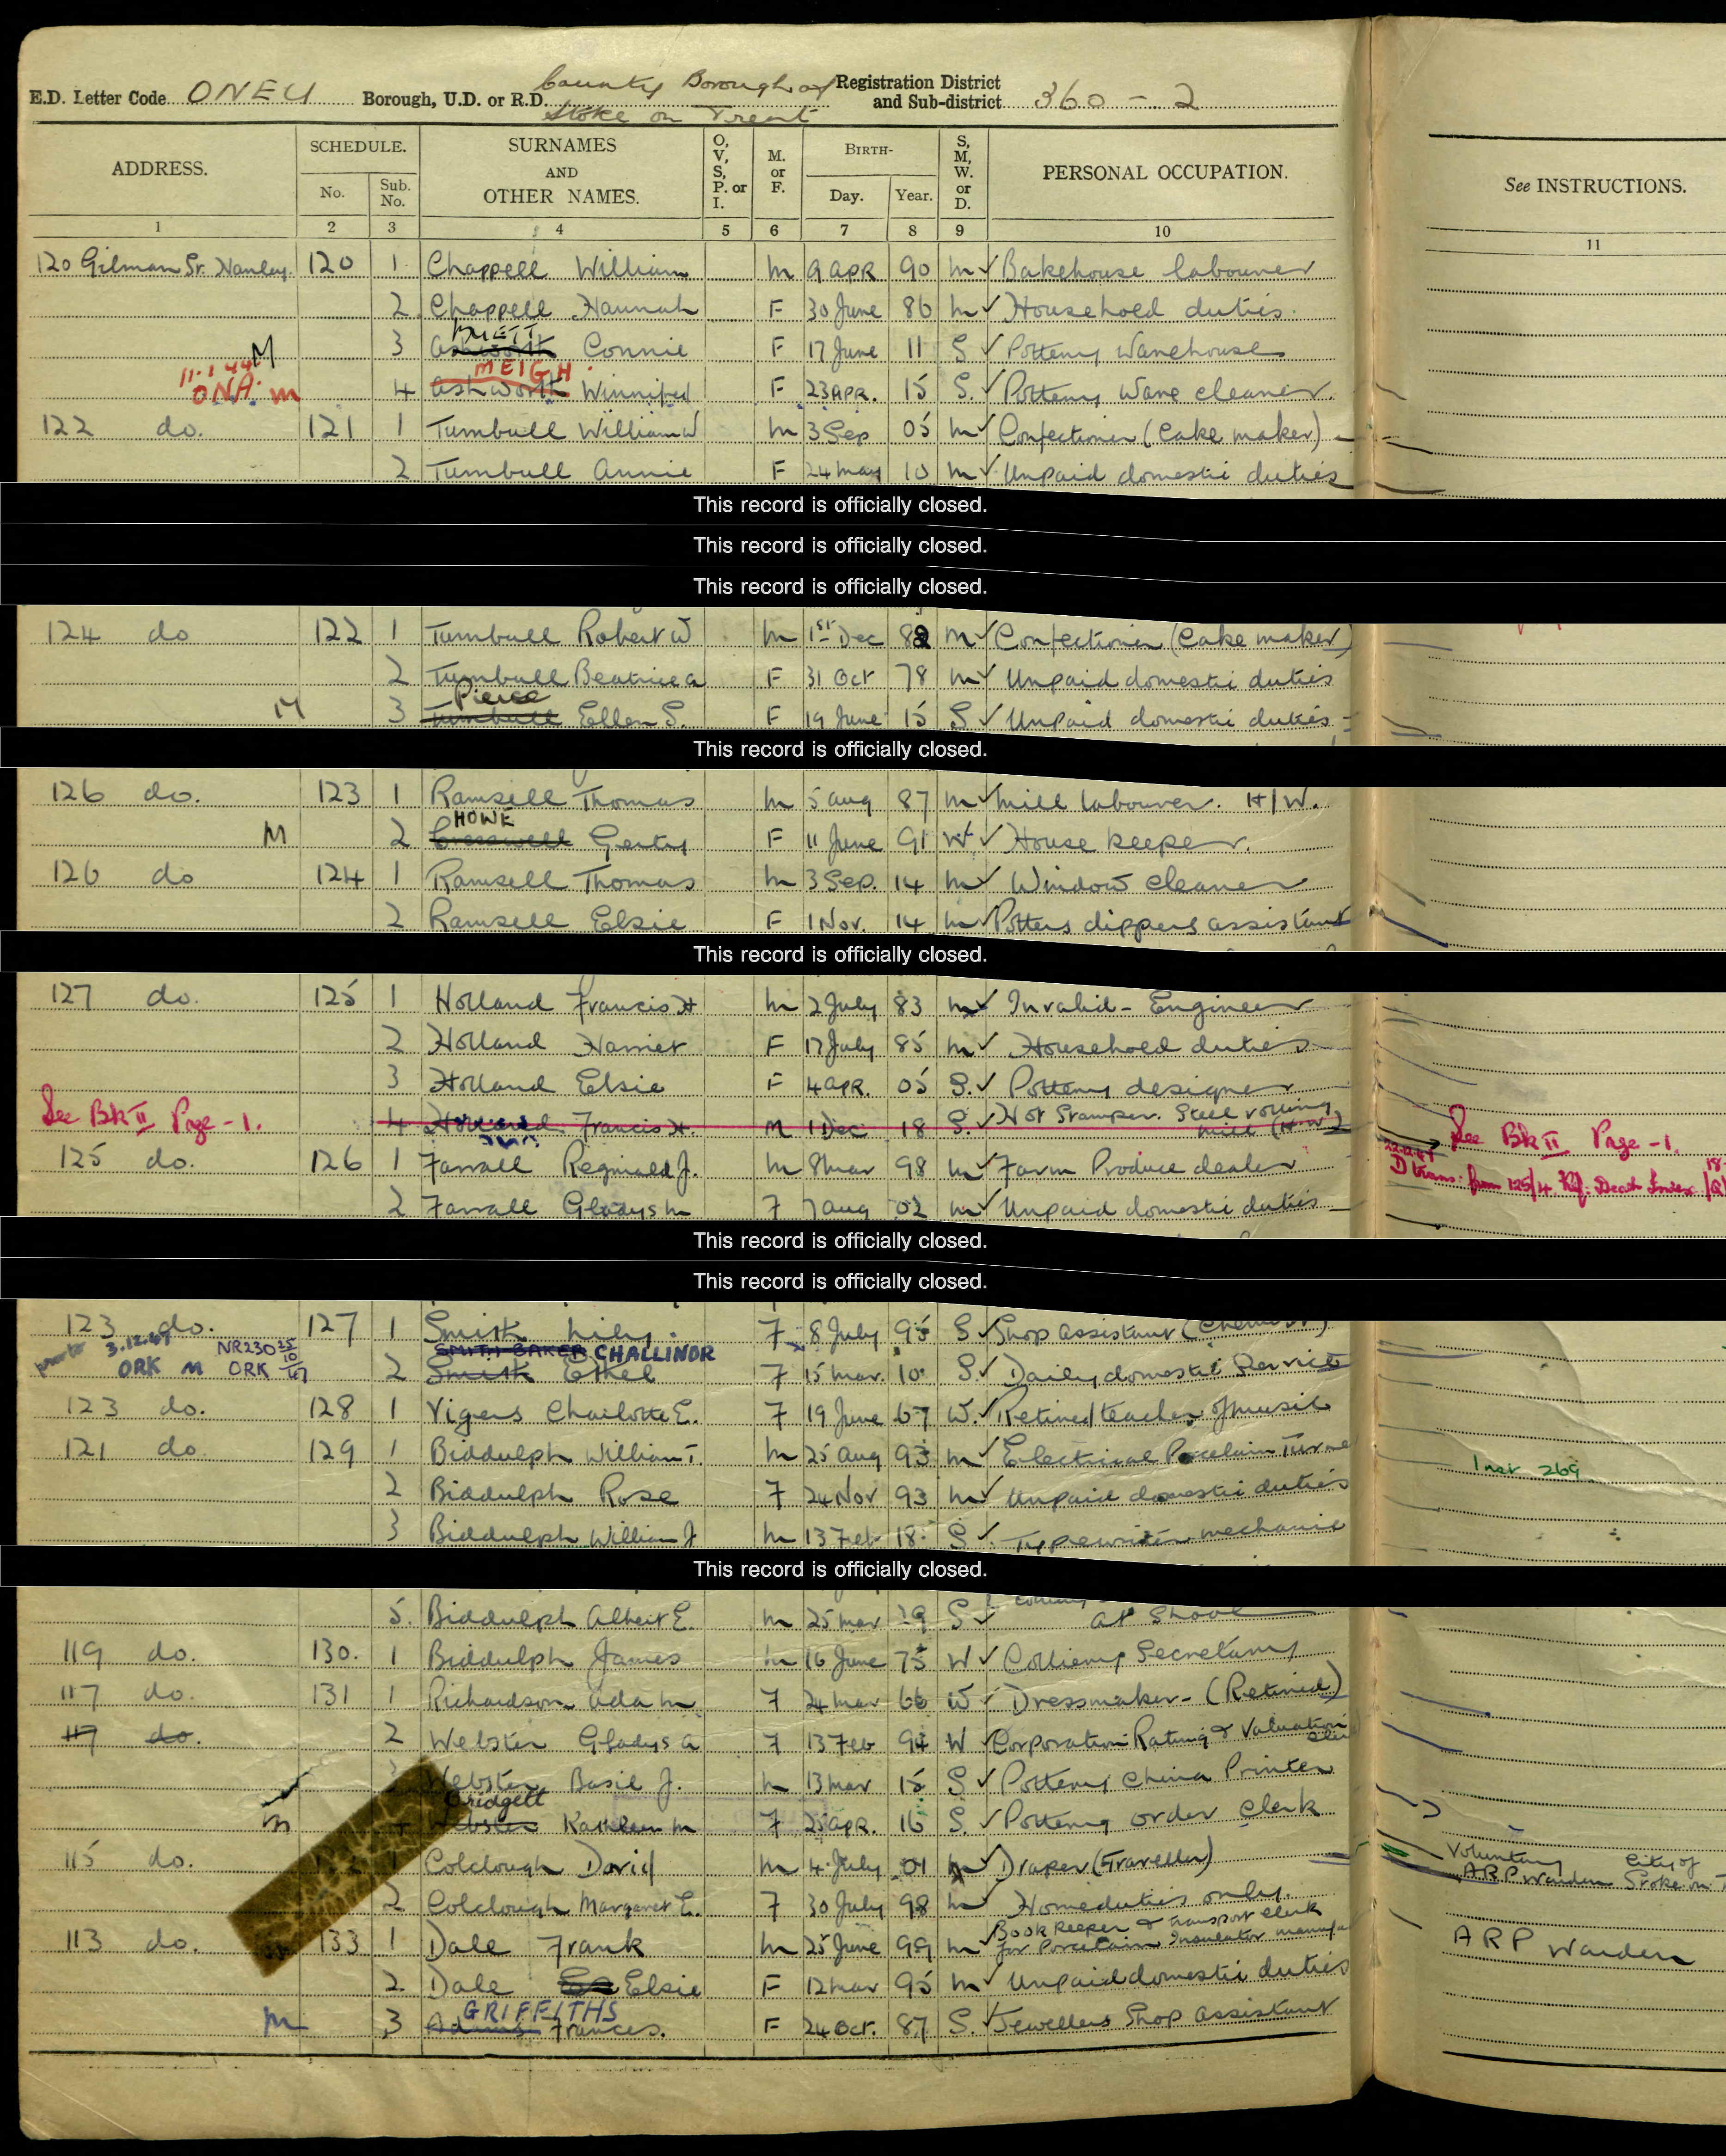 E.D. Letter Code ONEU Borough, U.D. or R.D. County Borough of Stoke on Trent Registration District and Sub-district 360 - 2
ADDRESS. SCHEDULE. No. Sub. No. SURNAMES AND OTHER NAMES. O, V, S, P. or I. M. or F. BIRTH- Day. Year. S, M, W. or D. PERSONAL OCCUPATION. See INSTRUCTIONS.
1 2 3 4 5 6 7 8 9 10 11
120 Gilman St. Hanley. 120 1 Chappell William M 9 APR 90 M ✓ Bakehouse labourer
2 Chappell Hannah F 30 June 86 M ✓ Household duties.
M 3 Ashworth Connie F 17 June 11 S ✓ Pottery Warehouse
MEIGH
11.1.44 ONA. m 4 Ashworth Winnifred F 23 APR. 15 S. ✓ Pottery Ware cleaner.
122 do. 121 1 Turnbull William W M 3 Sep 05 M ✓ Confectioner (Cake maker)
2 Turnbull Annie F 24 May 10 M ✓ Unpaid domestic duties
This record is officially closed.
This record is officially closed.
This record is officially closed.
124 do 122 1 Turnbull Robert W M 1st Dec 82 M ✓ Confectioner (Cake maker)
2 Turnbull Beatrice A F 31 Oct 78 M ✓ Unpaid domestic duties
Pierce
M 3 Turnbull Ellen S. F 19 June 15 S ✓ Unpaid domestic duties
This record is officially closed.
126 do. 123 1 Ramsell Thomas M 5 Aug 87 M ✓ Mill labourer. H/W.
HOWE
M 2 Cresswell Gerty F 11 June 91 W ✓ House keeper.
126 do 124 1 Ramsell Thomas M 3 Sep. 14 M ✓ Window Cleaner
2 Ramsell Elsie F 1 Nov. 14 M ✓ Potters dippers assistant
This record is officially closed.
127 do. 125 1 Holland Francis H M 2 July 83 M ✓ Invalid - Engineer
2 Holland Harriet F 17 July 85 M ✓ Household duties
3 Holland Elsie F 4 APR. 05 S. ✓ Pottery designer
See Bk II Page - 1. 4 Holland Francis H. M 1 Dec 18 S. ✓ Hot Stamper. Steel rolling mill (H.W.) See Bk II Page - 1.
125 do. 126 1 Farrall Reginald J. M 8 Mar 98 M ✓ Farm Produce dealer D trans: from 125/4. Ref: Death Index
2 Farrall Gladys M F 7 Aug 02 M ✓ Unpaid domestic duties
This record is officially closed.
This record is officially closed.
123 do. 127 1 Smith Lily. F 8 July 95 S ✓ Shop assistant (Chemist)
3.12.47 NR230 25/10/47 SMITH BAKER CHALLINOR
ORK M ORK 2 Smith Ethel F 15 Mar. 10 S. ✓ Daily domestic Service
123 do. 128 1 Vigers Charlotte E. F 19 June 67 W. ✓ Retired teacher of music
121 do 129 1 Biddulph William T. M 25 Aug 93 M ✓ Electrical Porcelain Turner Inst 269
2 Biddulph Rose F 24 Nov 93 M ✓ Unpaid domestic duties
3 Biddulph William J M 13 Feb 18 S ✓ Typewriter mechanic
This record is officially closed.
5. Biddulph Albert E. M 25 Mar 29 S ✓ at School
119 do. 130. 1 Biddulph James M 16 June 75 W ✓ Colliery Secretary
117 do. 131 1 Richardson Ada M F 24 Mar 66 W Dressmaker - (Retired)
117 do. 2 Webster Gladys A F 13 Feb 94 W Corporation Rating & Valuation
Webster Basil J. M 13 Mar 15 S ✓ Pottery China Printer
Bridgett
m Webster Kathleen M F 25 APR. 16 S. ✓ Pottery order Clerk
115 do. Colclough David M 4 July 01 M ✓ Draper (Traveller) Voluntary ARP Warden City of Stoke on T
2 Colclough Margaret E. F 30 July 98 M ✓ Home duties only.
113 do. 133 1 Dale Frank M 25 June 99 M ✓ Book Keeper & transport clerk for Porcelain Insulator manufa ARP Warden
2 Dale Elsie F 12 Mar 95 M ✓ Unpaid domestic duties
GRIFFITHS
m 3 Adams Frances. F 24 Oct. 87 S. ✓ Jewellers Shop assistant